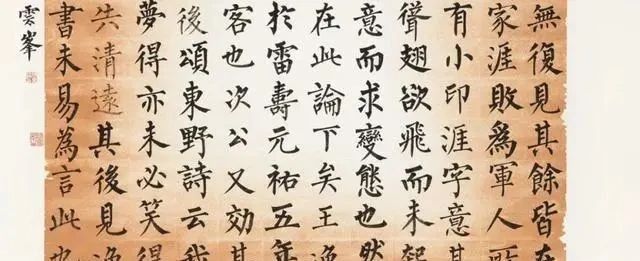 無復見其餘皆在
家涯敗爲軍人所
有小印涯字意其
聳翅欲飛而未起
意而求變態也然
在此論下矣王
於雷壽元祐五年
客也次公又効其
後頌東野詩云我
夢得亦未必笑得
共清遠其後見
書未易為言此也
雲峯